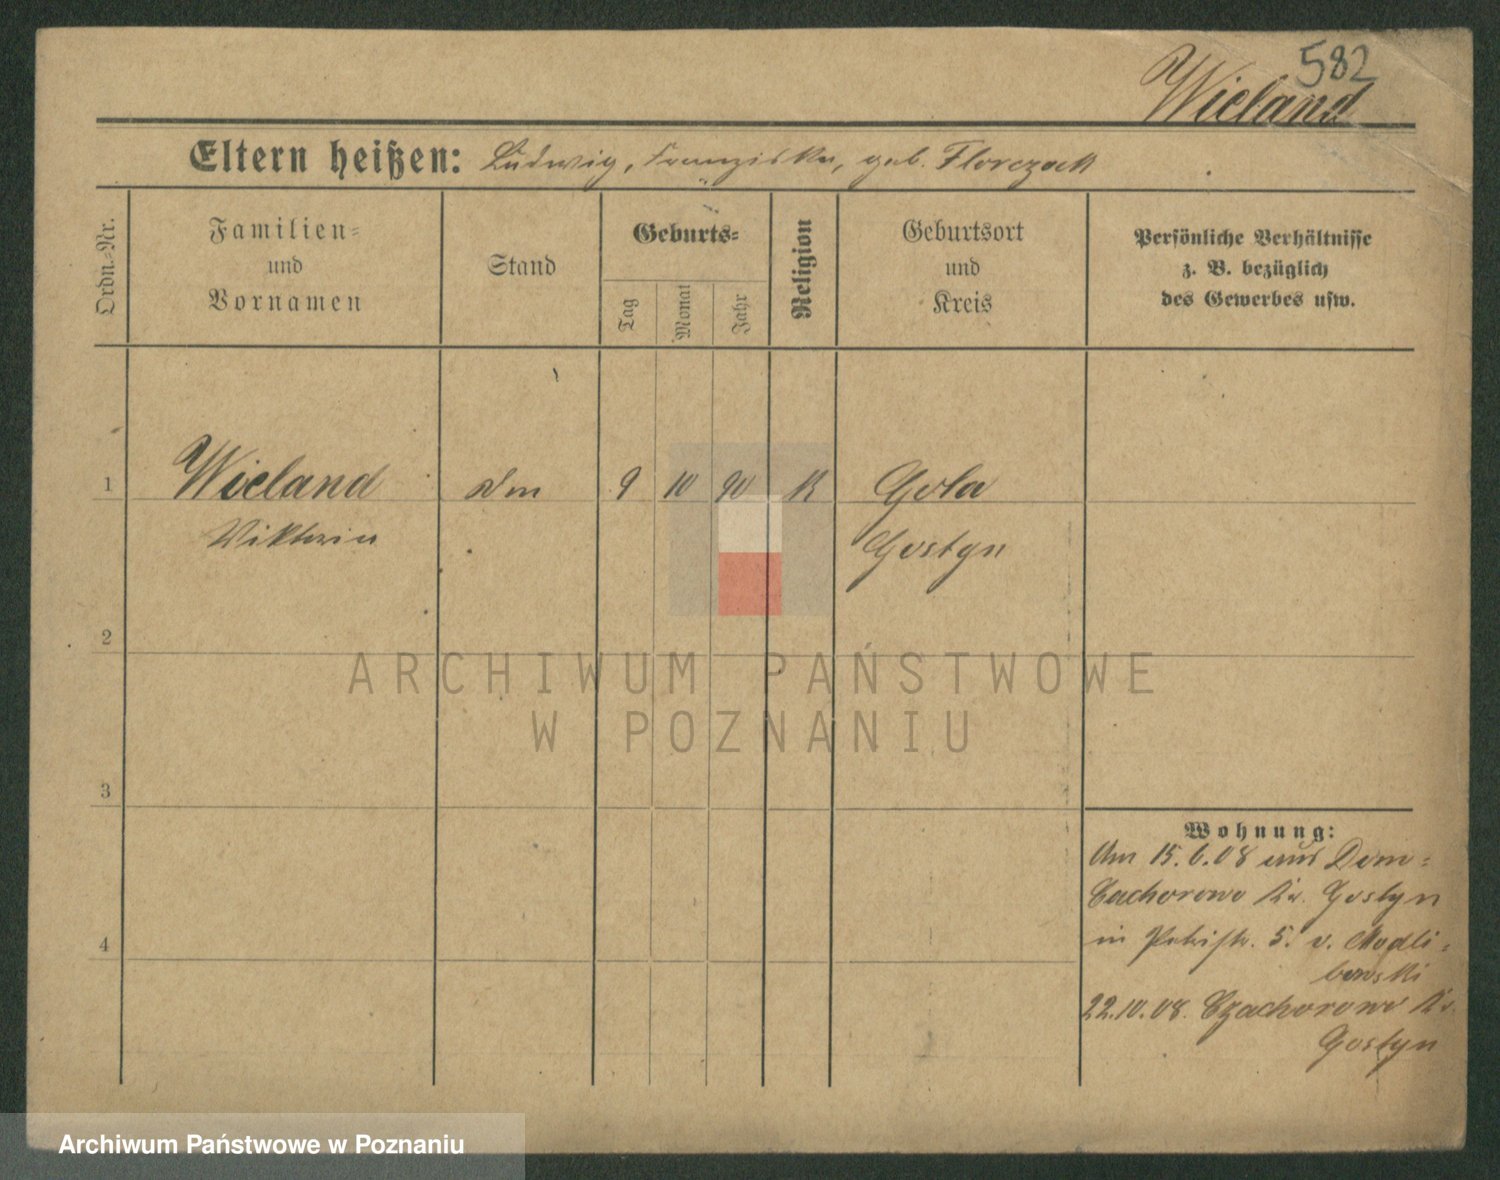 582
Wieland
Eltern heißen: Ludwig, Franziska, geb. Florczack
Ordn.-Nr.
Familien-
und
Vornamen
Stand
Geburts-
Tag
Monat
Jahr
Religion
Geburtsort
und
Kreis
Persönliche Verhältnisse
z. B. bezüglich
des Gewerbes usw.
1 Wieland 9 10 90 K Gola
Viktoria Gostyn
2
ARCHIWUM PAŃSTWOWE
W POZNANIU
3
Wohnung:
Am 15.6.08 aus Dom-
Czachorowo Kr. Gostyn
in 5. v. Modli-
bowski
4
22.10.08. Czachorowo Kr.
Gostyn
Archiwum Państwowe w Poznaniu